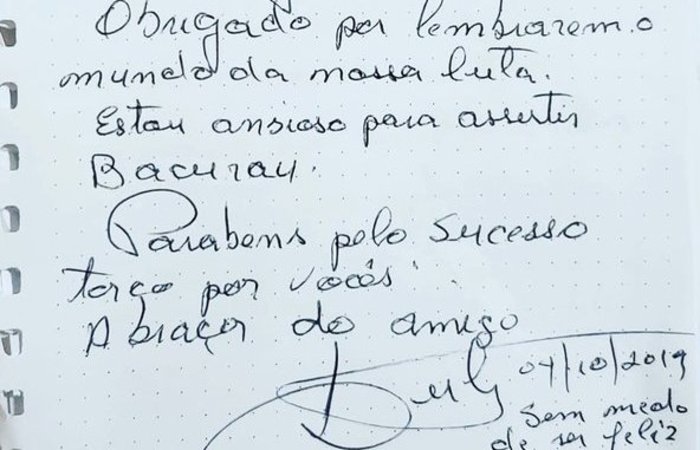 Obrigado por lembrarem o
mundo da nossa luta.
Estou ansioso para assistir
Bacurau.
Parabens pelo sucesso
torço por vocês
Abraços do amigo
Lula 04/10/2019
Sem medo
de ser feliz